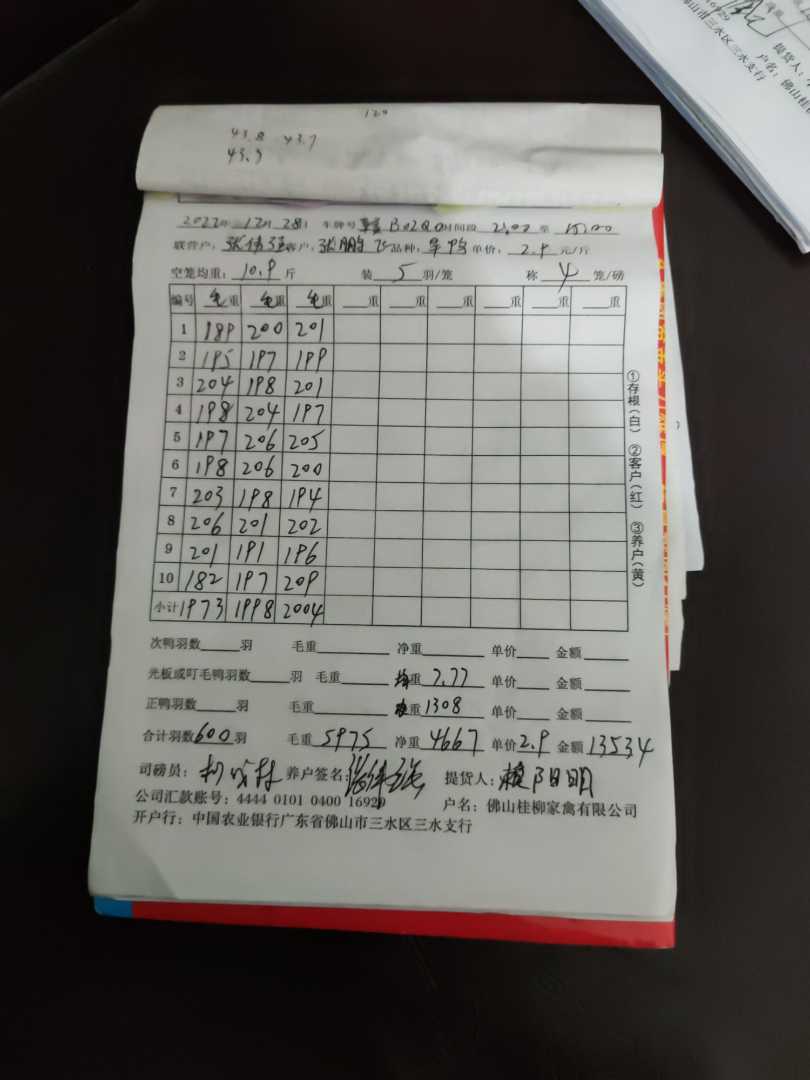 120
43.8 43.7
43.9
2022年 12月 28日 车牌号 B02Q0 时间段 至 15:00
联营户: 张伟强 客户: 张鹏飞 品种: 单价: 2.9 元/斤
空笼均重: 10.9 斤 装 5 羽/笼 称 4 笼/磅
编号 毛重 毛重 毛重 重 重 重 重 重 重
1 189 200 201
2 195 197 199
3 204 198 201
4 198 204 197
5 197 206 205
6 198 206 200
7 203 198 194
8 206 201 202
9 201 191 196
10 182 197 209
小计 1973 1998 2004
①存根(白) ②客户(红) ③养户(黄)
次鸭羽数 羽 毛重 净重 单价 金额
光板或叮毛鸭羽数 羽 毛重 均重 7.77 单价 金额
正鸭羽数 羽 毛重 重 1308 单价 金额
合计羽数 600 羽 毛重 5975 净重 4667 单价 2.9 金额 13534
司磅员: 养户签名: 张伟强 提货人: 赖阳明
公司汇款账号: 4444 0101 0400 16929 户名: 佛山桂柳家禽有限公司
开户行: 中国农业银行广东省佛山市三水区三水支行
16929
提货人:
户名: 佛山桂
佛山市三水区三水支行